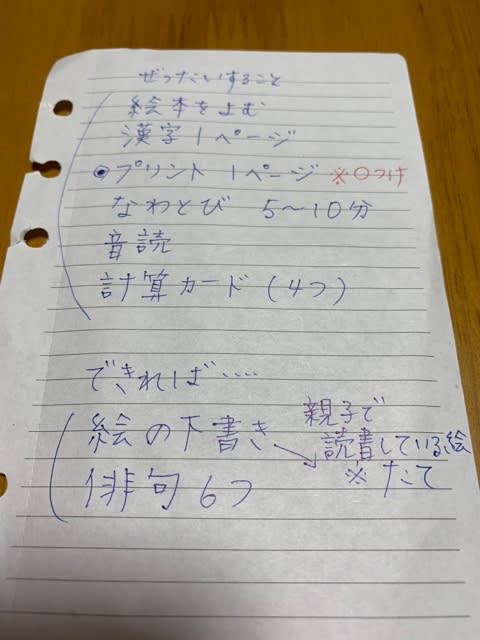 ぜったいすること
絵本をよむ
漢字1ページ
プリント 1ページ ※○つけ
なわとび 5〜10分
音読
計算カード(4つ)
できれば....
絵の下書き
親子で
読書している絵
※たて
俳句6つ